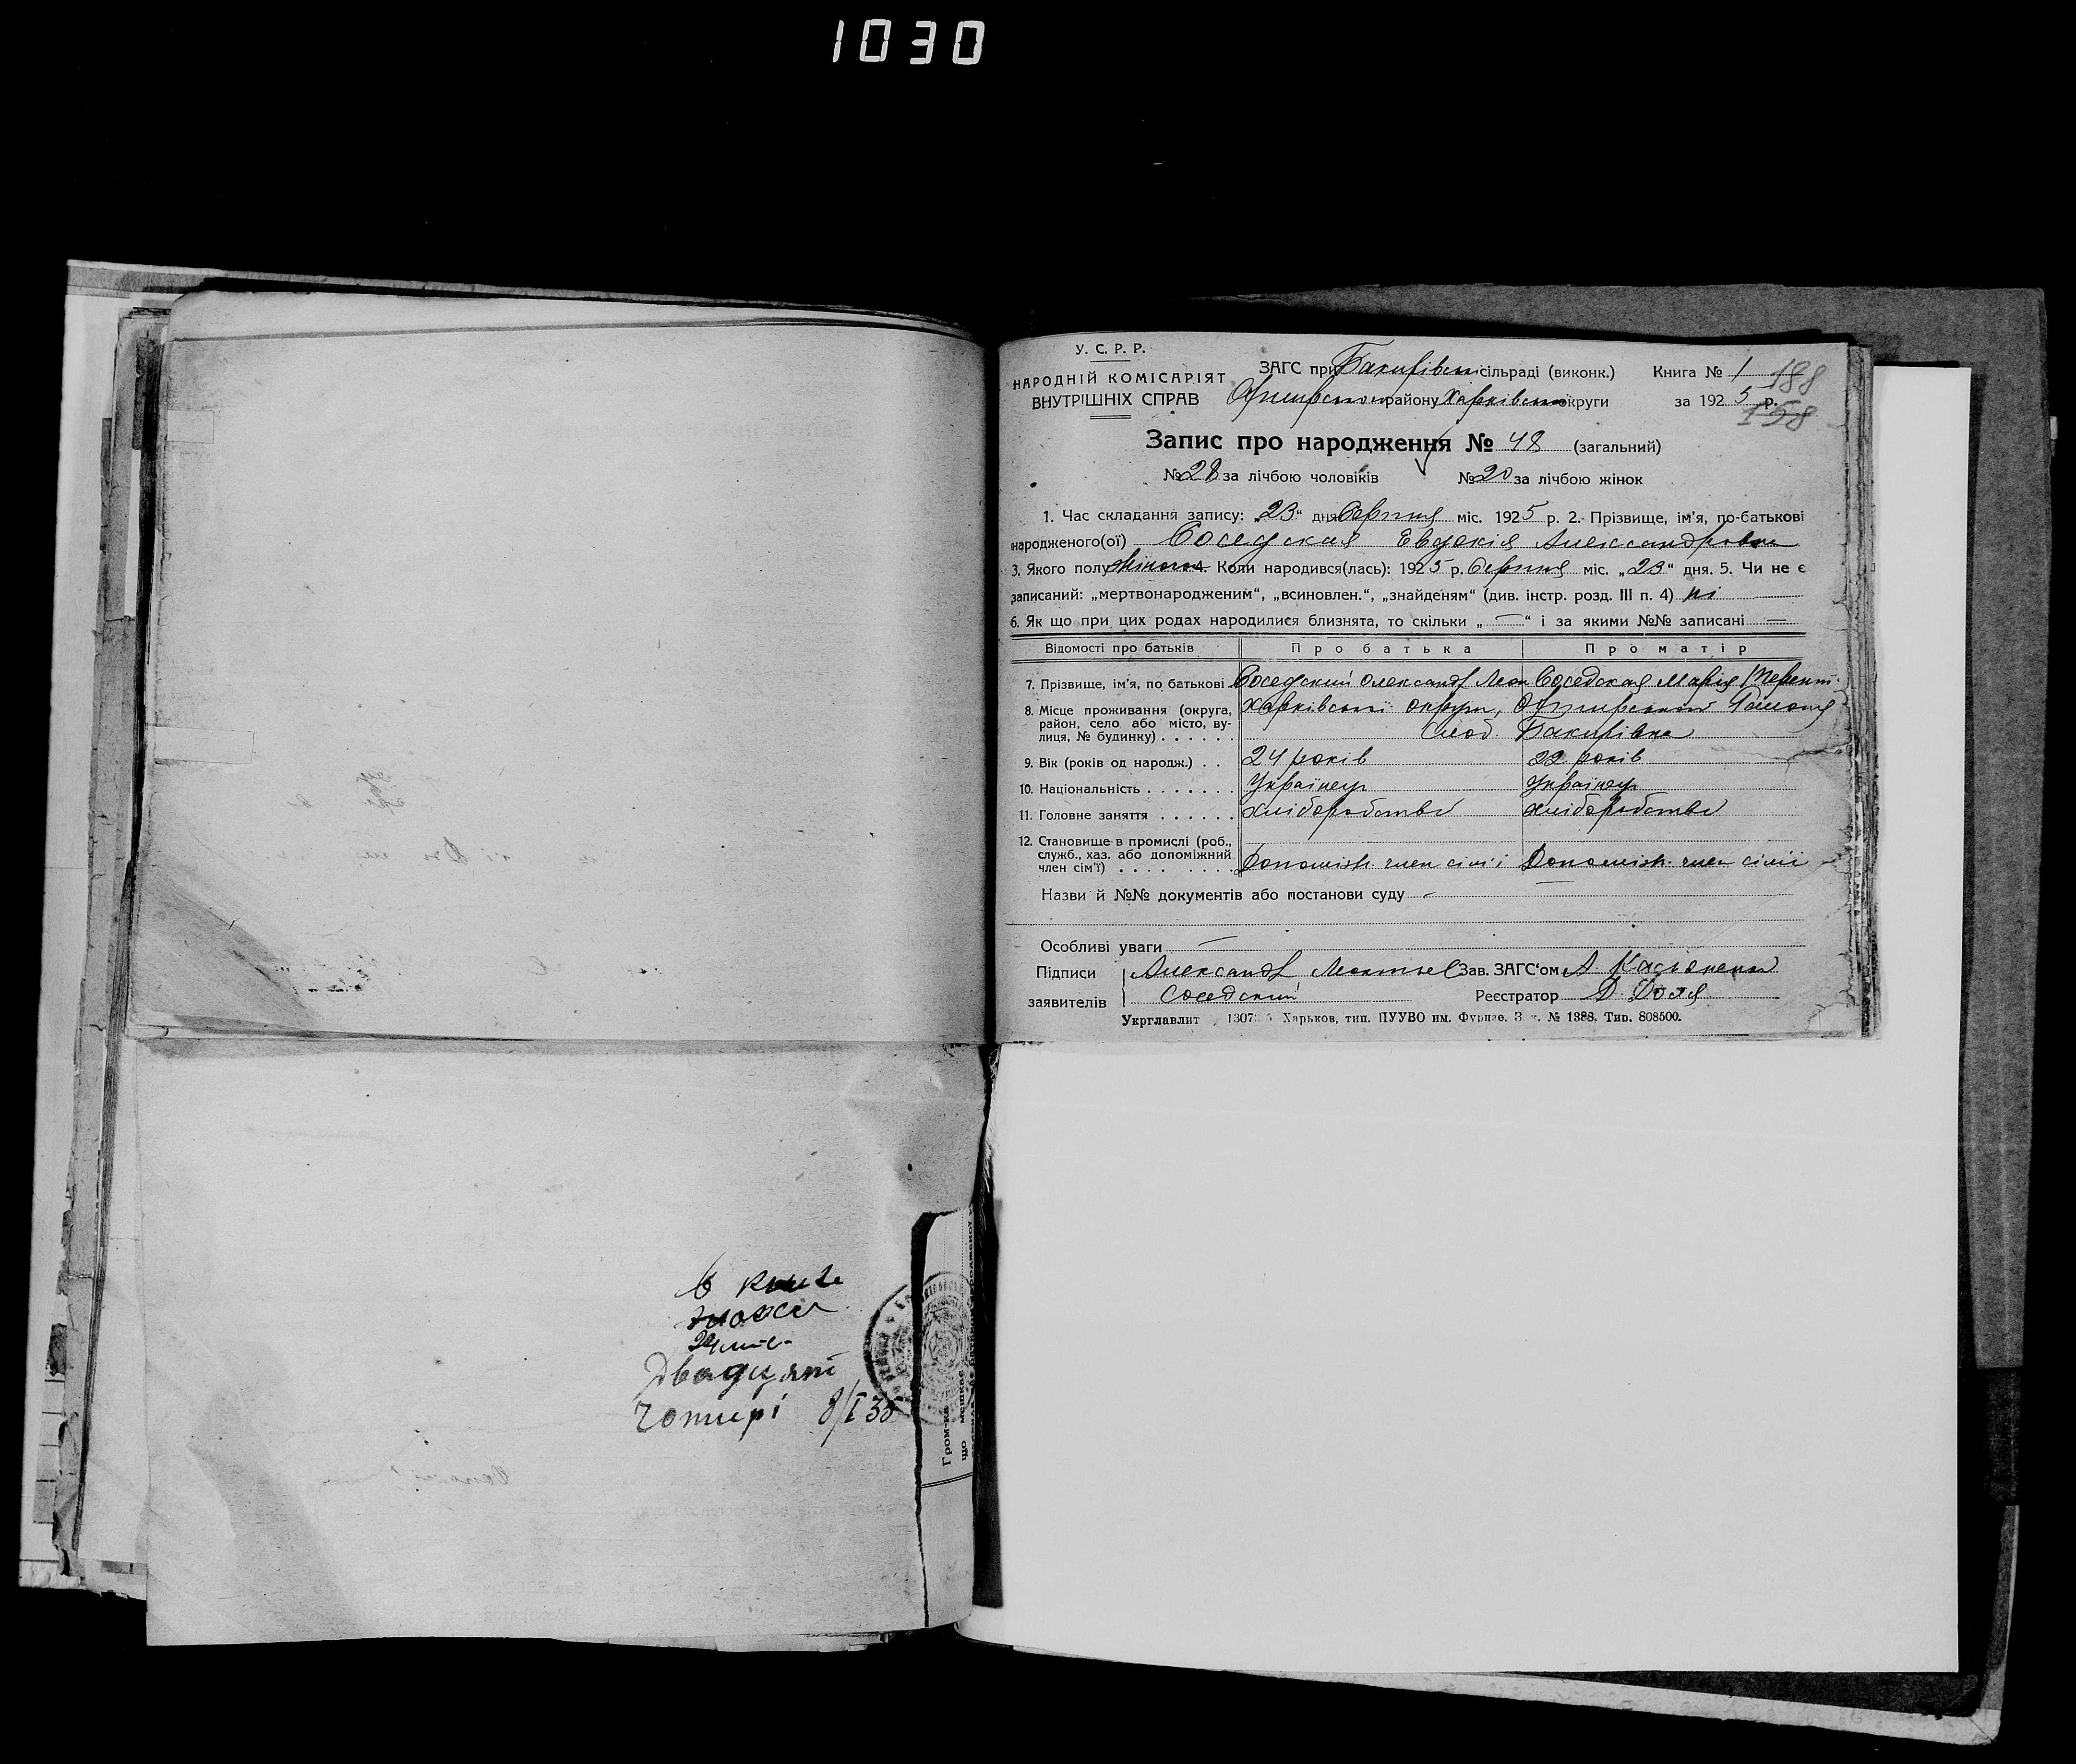 1030
У. С. Р. Р.
НАРОДНІЙ КОМІСАРІЯТ
ВНУТРІШНІХ СПРАВ
ЗАГС при Бакирівськ сільраді (виконк.)
району Харківської округи
Книга № 1
за 1925 р.
188
158
Запис про народження № 48 (загальний)
№ 28 за лічбою чоловіків № 20 за лічбою жінок
1. Час складання запису: „23“ дня Серпня міс. 1925 р. 2. Прізвище, ім'я, по-батькові
народженого(ої) Соседская Евдокія Александровна
3. Якого полу 4. Коли народився(лась): 1925 р. Серпня міс. „23“ дня. 5. Чи не є
записаний: „мертвонародженим“, „всиновлен.“, „знайденям“ (див. інстр. розд. III п. 4) ні
6. Як що при цих родах народилися близнята, то скільки „—“ і за якими №№ записані —
Відомості про батьків Про батька Про матір
7. Прізвище, ім'я, по батькові Соседский Олександр Леон Соседская Мария
8. Місце проживання (округа, район, село або місто, вулиця, № будинку) Харківської округи,
Слод. Бакирівка
9. Вік (років од народж.) 24 років 22 років
10. Національність Українец Українец
11. Головне заняття хліборобство хліборобство
12. Становище в промислі (роб., служб., хаз. або допоміжний член сім'ї) Допоміж. член сімї Допоміж. член сімї
Назви й №№ документів або постанови суду —
Особливі уваги —
Підписи
заявителів
Александр Леонтьев
Соседский
Зав. ЗАГС'ом А.
Реєстратор Д. Доля
Укрглавлит Харьков, тип. ПУУВО им. Фрунзе. № 1388. Тир. 808500.
В книге
Двадцят
чотирі 8/I 35
Гром-ка
що мешкає